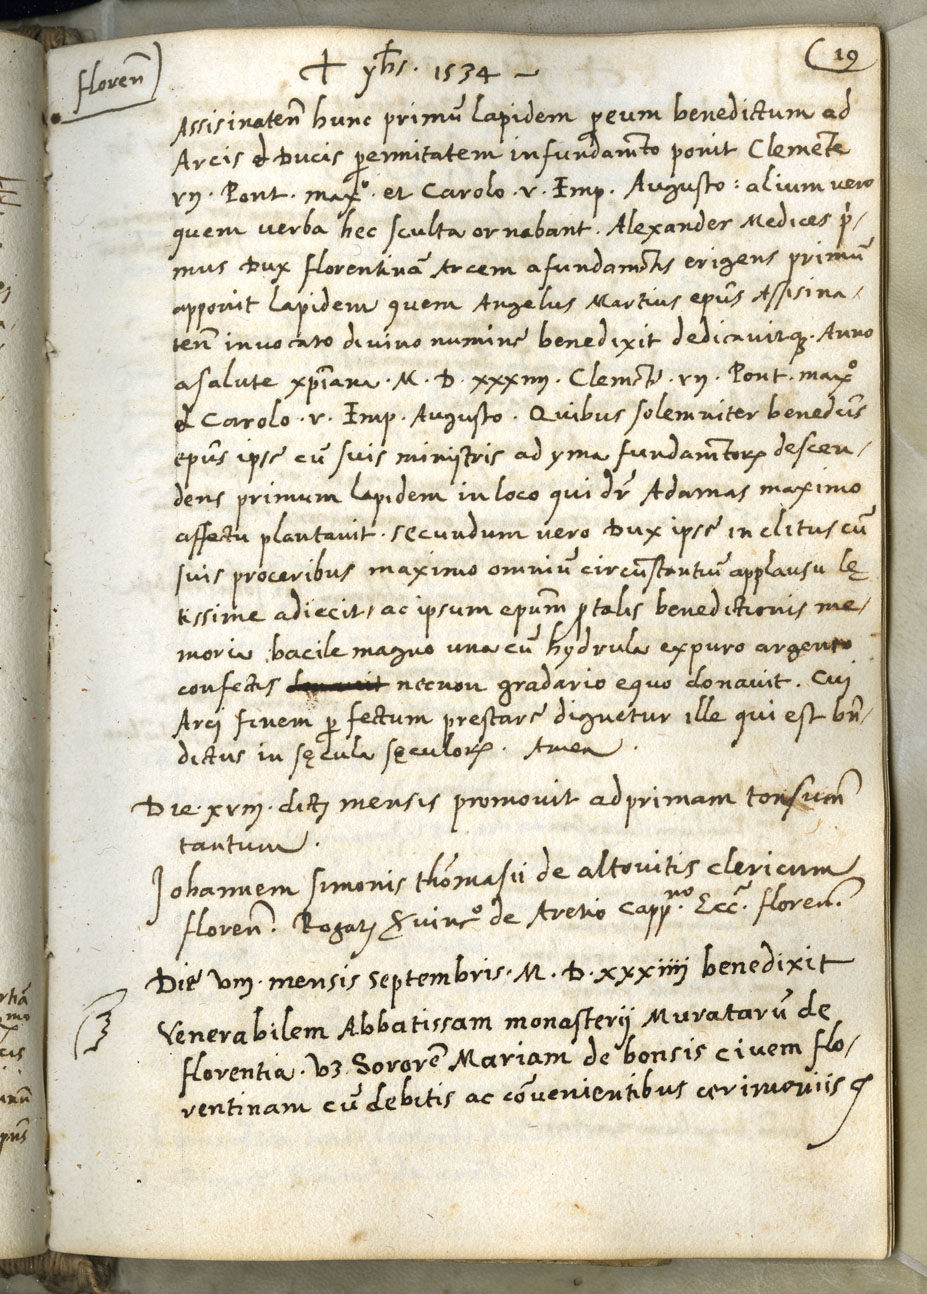 floren̄
✝ yh̄s · 1534 ~
19
Assisinateñ hunc primū lapidem ꝑ eum benedictum ad
Arcis & Ducis ꝑennitatem infundam̄to ponit Clemen̄te
vij · Pont · maxᵒ · et Carolo · v · Imp · Augusto : alium vero
quem verba hec sculta ornabant . Alexander Medices p̍⸗
mus Dux florentinā Arcem afundam̄tis erigens primū
apponit lapidem quem Angelus Martius ep̄us Assisina⸗
teñ invocato divino numine benedixit dedicavitqȝ . Anno
asalute xp̄iana · M · D · xxxiiij · Clemen̄te · vij · Pont · maxᵒ
& Carolo · v · Imp · Augusto · Quibus solemniter bened̄cis
ep̄us ipse cū suis ministris ad yma fundam̄torꝝ descen⸗
dens primum lapidem in loco qui dr̄ Adamas maximo
affectu plantavit · secundum vero Dux ipse inclitus cū
suis proceribus maximo omniū circūstantiū applausu lę
tissime adiecit, ac ipsum ep̄um ꝓ talis benedictionis me⸗
moria bacile magno una cū hydrula expuro argento
confectis donavit necnon gradario equo donavit . Cui
Arci finem ꝑfectum prestare dignetur ille qui est bn̄⸗
dictus in sęcula sęculorꝝ . Amen .
Die · xviij · dictj mensis promovit adprimam tonsuram̄
tantum .
Johannem simonis thōmasii de altovitis clericum
floren̄ . Rogatj & vincᵒ de Aretio Cappⁿᵒ · Ecc̄ · floren̄ .
Die viij · mensis septembris · M · D · xxxiiij benedixit
Venerabilem Abbatissam monasterij Muratarū de
florentia · vȝ Sororē Mariam de bonsis civem flo⸗
rentinam cū debitis ac cōvenientibus cerimoniis